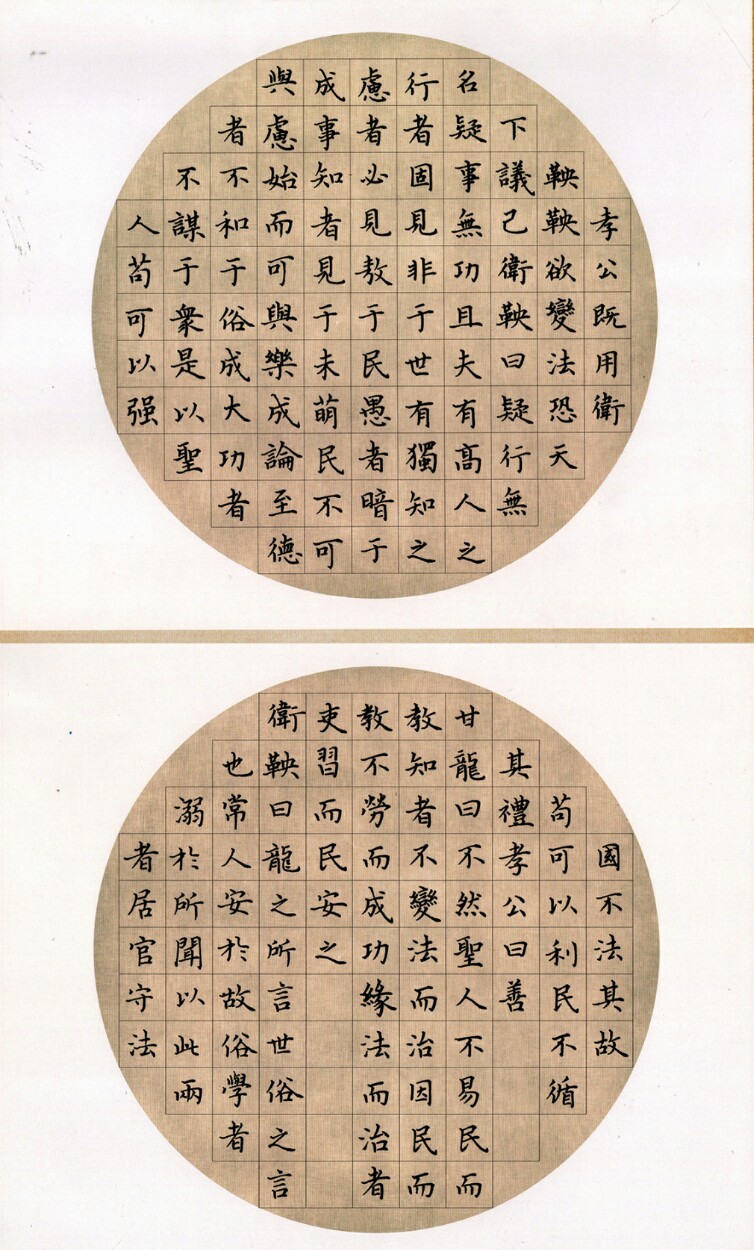 孝公既用衛
鞅鞅欲變法恐天
下議己衛鞅曰疑行無
名疑事無功且夫有高人之
行者固見非于世有獨知之
慮者必見敖于民愚者暗于
成事知者見于未萌民不可
與慮始而可與樂成論至德
者不和于俗成大功者
不謀于衆是以聖
人苟可以强
國不法其故
苟可以利民不循
其禮孝公曰善
甘龍曰不然聖人不易民而
教知者不變法而治因民而
教不勞而成功緣法而治者
吏習而民安之
衛鞅曰龍之所言世俗之言
也常人安於故俗學者
溺於所聞以此兩
者居官守法